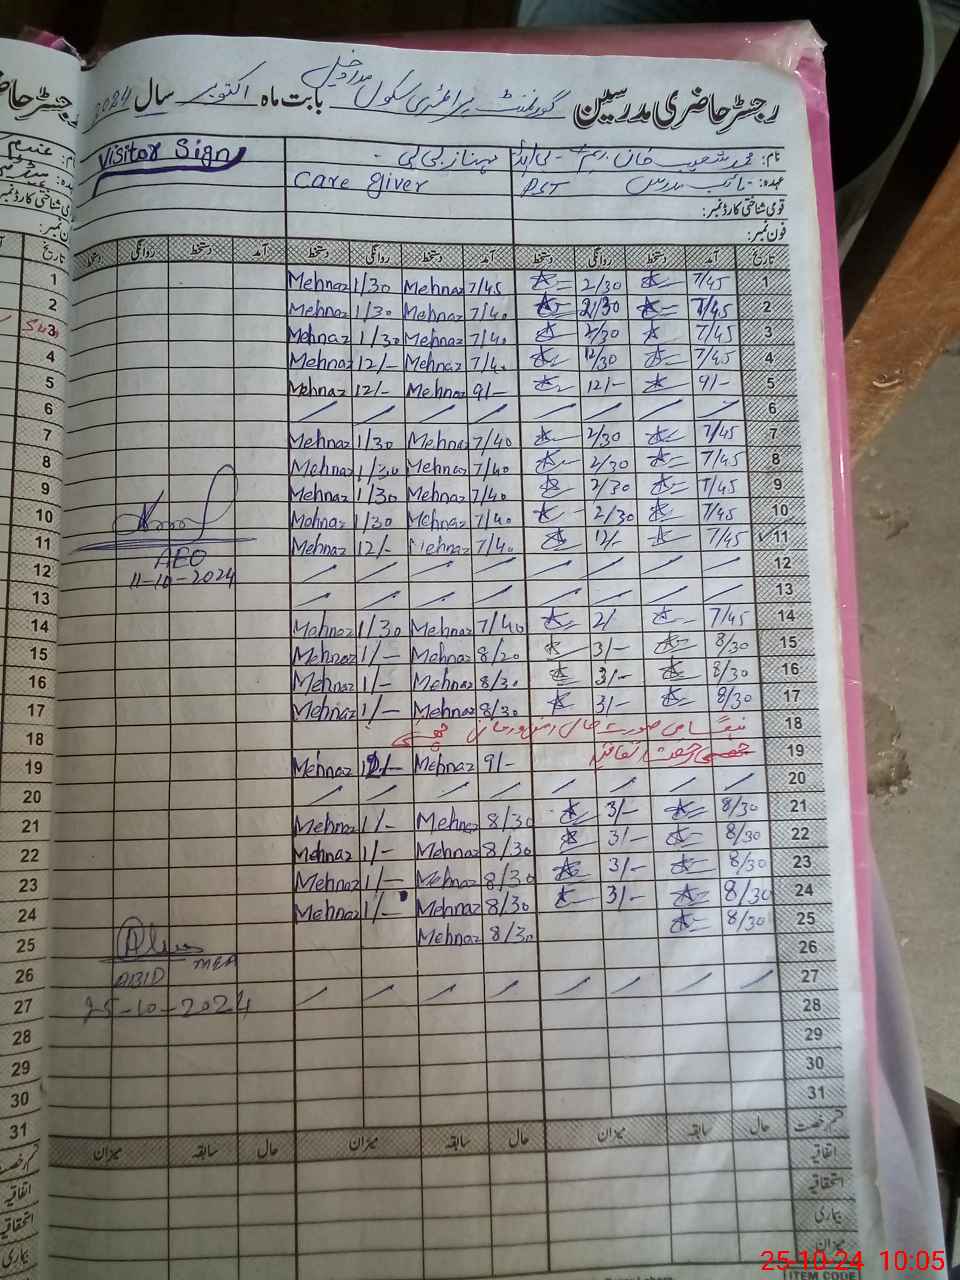 رجسٹر حاضری مدرسین گورنمنٹ پرائمری سکول بابت ماہ اکتوبر سال 2024
نام: محمد شعیب خان مہناز بی بی Visitor Sign
عہدہ: نائب مدرس PST Care Giver
قومی شناختی کارڈ نمبر:
فون نمبر:
تاریخ آمد دستخط روانگی دستخط آمد دستخط روانگی دستخط آمد دستخط روانگی دستخط
1 7/45 2/30 7/45 Mehnaz 1/30 Mehnaz
2 7/45 2/30 7/40 Mehnaz 1/30 Mehnaz
3 7/45 2/30 7/40 Mehnaz 1/30 Mehnaz
4 7/45 12/30 7/40 Mehnaz 12/- Mehnaz
5 9/- 12/- 9/- Mehnaz 12/- Mehnaz
6
7 7/45 2/30 7/40 Mehnaz 1/30 Mehnaz
8 7/45 2/30 7/40 Mehnaz 1/30 Mehnaz
9 7/45 2/30 7/40 Mehnaz 1/30 Mehnaz
10 7/45 2/30 7/40 Mehnaz 1/30 Mehnaz
11 7/45 12/- 7/40 Mehnaz 12/- Mehnaz
AEO
11-10-2024
12
13
14 7/45 2/ 7/40 Mehnaz 1/30 Mehnaz
15 8/30 3/- 8/20 Mehnaz 1/- Mehnaz
16 8/30 3/- 8/30 Mehnaz 1/- Mehnaz
17 8/30 3/- 8/30 Mehnaz 1/- Mehnaz
18 صورت حال چھٹی
19 رخصت اتفاقیہ 9/- Mehnaz Mehnaz
20
21 8/30 3/- 8/30 Mehnaz 1/- Mehnaz
22 8/30 3/- 8/30 Mehnaz 1/- Mehnaz
23 8/30 3/- 8/30 Mehnaz 1/- Mehnaz
24 8/30 3/- 8/30 Mehnaz 1/- Mehnaz
25 8/30 8/30 Mehnaz
ABID MEA
25-10-2024
26
27
28
29
30
31
قسم رخصت حال سابقہ میزان حال سابقہ میزان حال سابقہ میزان
اتفاقیہ
استحقاقیہ
بیماری
میزان
ITEM CODE
25-10-24 10:05